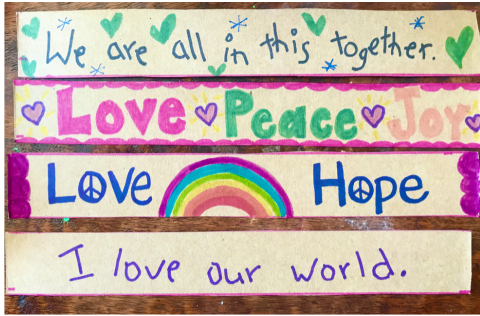 We are all in this together.
Love Peace Joy
Love Hope
I love our world.